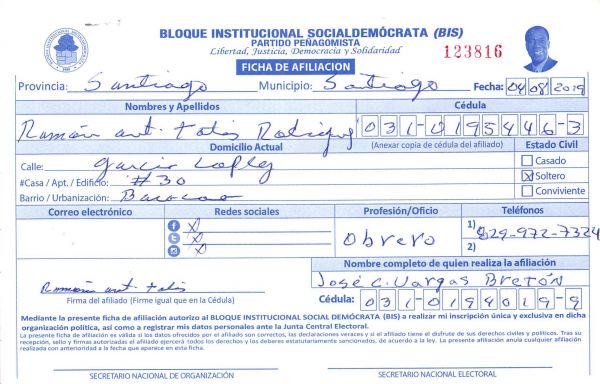 BLOQUE INSTITUCIONAL SOCIALDEMÓCRATA (BIS)
PARTIDO PEÑAGOMISTA
Libertad, Justicia, Democracia y Solidaridad
123816
FICHA DE AFILIACION
Provincia: Santiago Municipio: Santiago Fecha: 04/08/2019
Nombres y Apellidos Cédula
Ramón ant. 031-0195446-3
(Anexar copia de cédula del afiliado)
Domicilio Actual Estado Civil
Calle: García Casado
#Casa / Apt. / Edificio: #30 Soltero
Barrio / Urbanización: Conviviente
Correo electrónico Redes sociales Profesión/Oficio Teléfonos
Obrero
1) 829-972-7324
2)
Nombre completo de quien realiza la afiliación
José C. Vargas Bretón
Ramón ant.
Firma del afiliado (Firme igual que en la Cédula)
Cédula: 031-0194019-9
Mediante la presente ficha de afiliación autorizo al BLOQUE INSTITUCIONAL SOCIAL DEMÓCRATA (BIS) a realizar mi inscripción única y exclusiva en dicha
organización política, así como a registrar mis datos personales ante la Junta Central Electoral.
La presente ficha de afiliación es válida si los datos ofrecidos por el afiliado son correctos, las declaraciones veraces y si el afiliado tiene el disfrute de sus derechos civiles y políticos. Tras su
recepción, sello y firmas autorizadas el afiliado ejercerá todos los derechos y los deberes estatutariamente sancionados, de acuerdo a la ley. La presente afiliación anula cualquier afiliación
realizada con anterioridad a la fecha que aparece en esta ficha.
SECRETARIO NACIONAL DE ORGANIZACIÓN SECRETARIO NACIONAL ELECTORAL